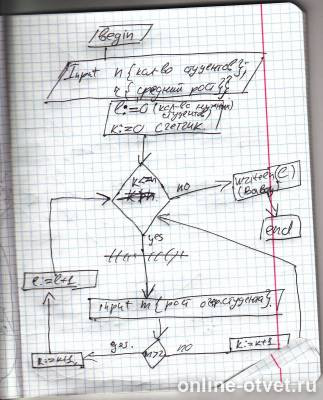 Begin
Input n {кол-во студентов};
r {средний рост};
l:=0 (кол-во нужных
студентов)
k:=0 счетчик.
k<=n
no
writeln(l)
(вывод)
end
yes
l:=l+1
input m {рост студента}
yes.
m>r
no
k:=k+1
k:=k+1
online-otvet.ru